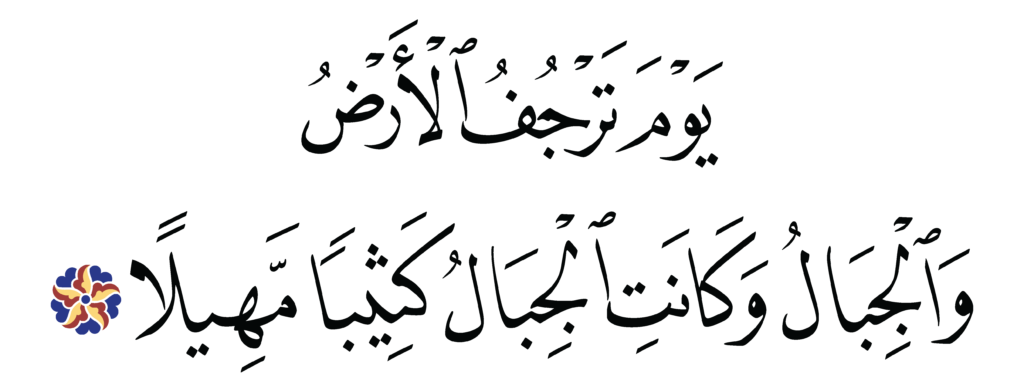 يَوْمَ تَرْجُفُ ٱلْأَرْضُ
وَٱلْجِبَالُ وَكَانَتِ ٱلْجِبَالُ كَثِيبًا مَّهِيلًا